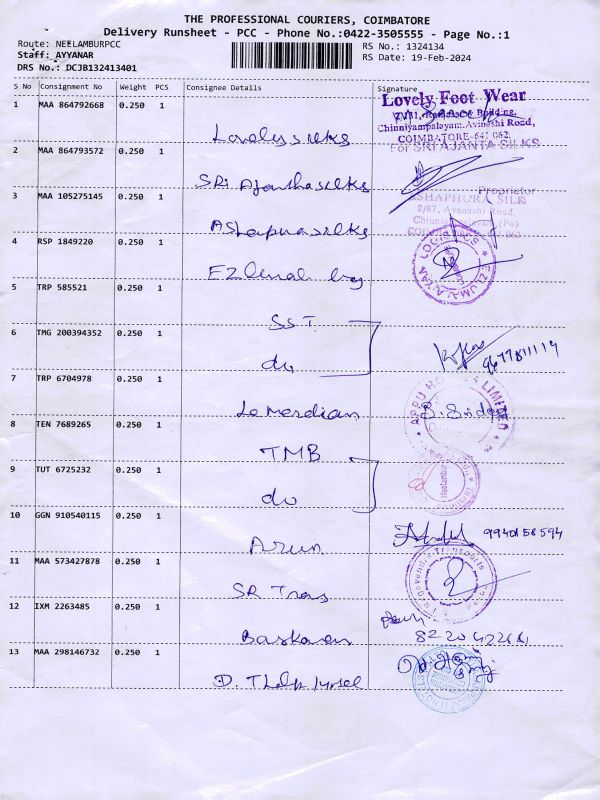 THE PROFESSIONAL COURIERS, COIMBATORE
Delivery Runsheet - PCC - Phone No.:0422-3505555 - Page No.:1
Route: NEELAMBURPCC
Staff: AYYANAR
DRS No.: DCJB132413401
RS No.: 1324134
RS Date: 19-Feb-2024
S No Consignment No Weight PCS Consignee Details Signature
1 MAA 864792668 0.250 1
Lovely Foot Wear
Chinniyampalayam, Avinashi Road,
COIMBATORE-641 062.
2 MAA 864793572 0.250 1
For SRI AJANTA SILKS
SRi Ajanthasilks
Proprietor
3 MAA 105275145 0.250 1
ASHAPHURA SILK
2/87, Avanashi Road,
4 RSP 1849220 0.250 1
EZLUMALAYAN LOGISTICS
5 TRP 585521 0.250 1
SST
6 TMG 200394352 0.250 1
do
7 TRP 6704978 0.250 1
Lemerdian
APPU HOTELS LIMITED
8 TEN 7689265 0.250 1
TMB
9 TUT 6725232 0.250 1
do
10 GGN 910540115 0.250 1
Arun 9940158594
11 MAA 573427878 0.250 1
SR Trans
12 IXM 2263485 0.250 1
Baskaran
13 MAA 298146732 0.250 1